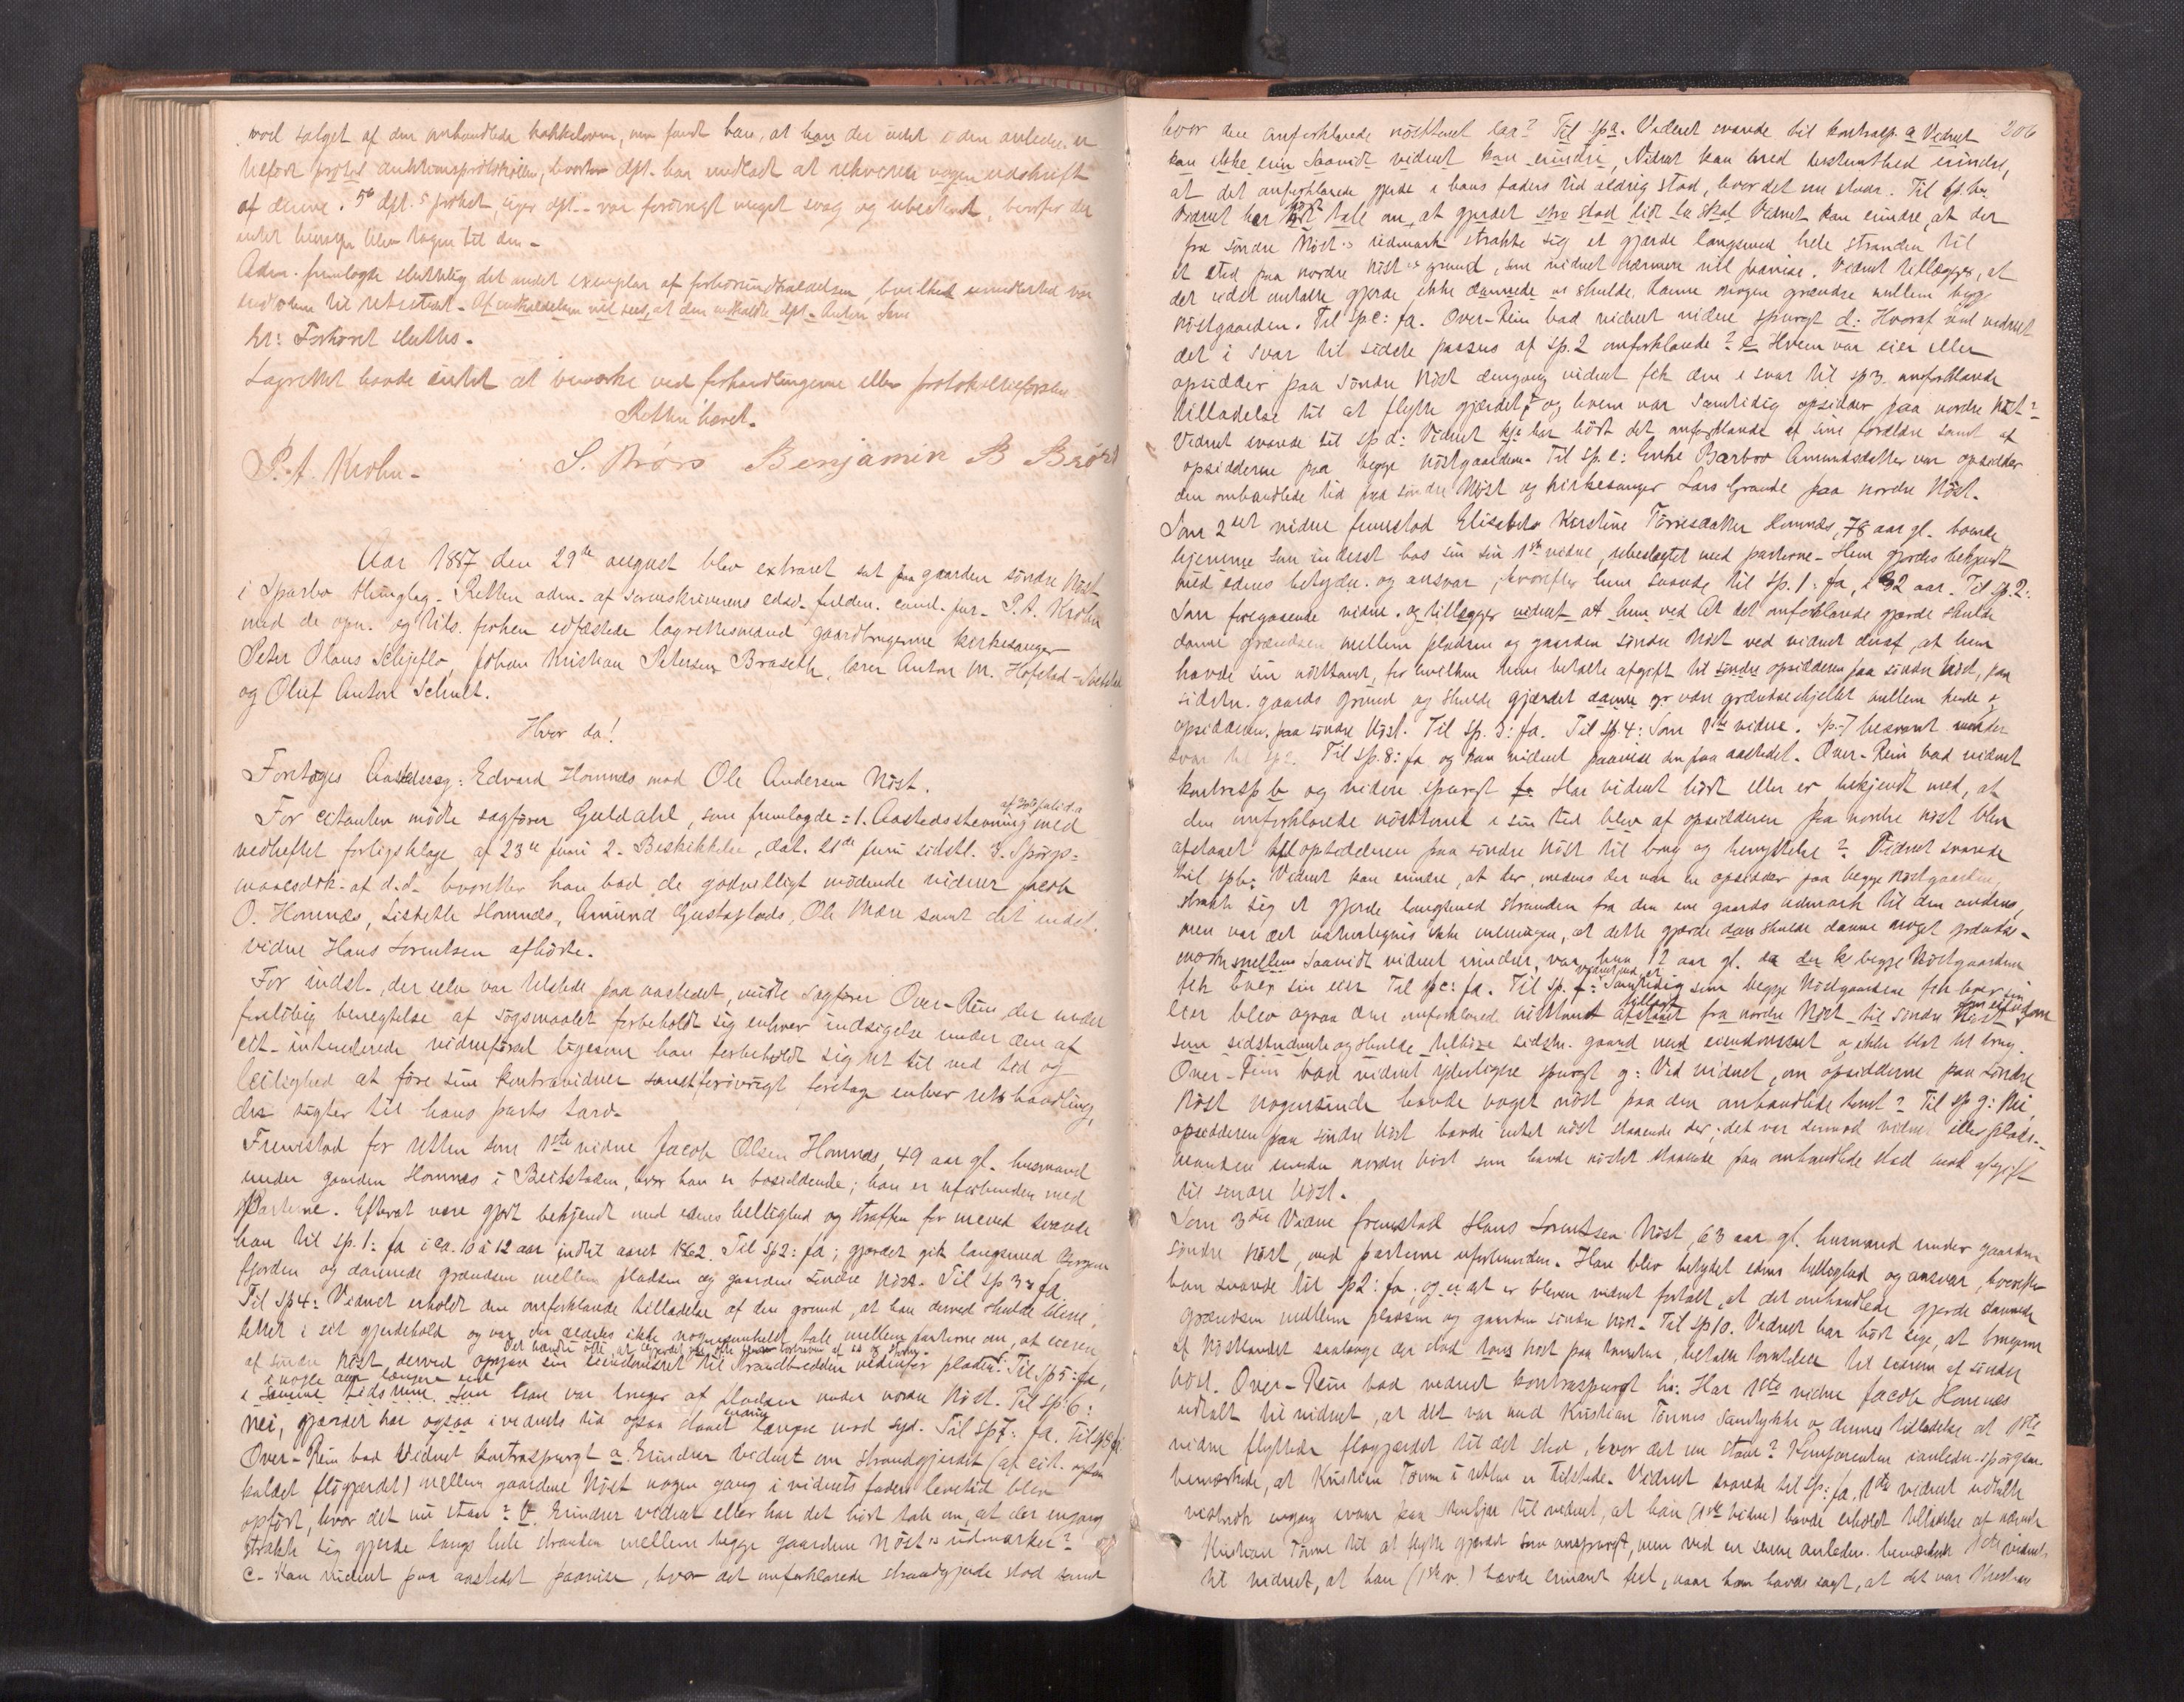 ved salget af den omhandlede kakkelovn, men fandt han, at han der intet i den anledn. er
tilført protok auktionsprotokollen, hvorfor dpt. har undladt at rekvirere nogen udskrift
af denne. 5o dpt.s pirket, eier dpt. - var forøvrigt meget svag og ubestemt, hvorfor der
intet hensyn blev tagen til den -
Adm. fremlagte sluttelig det andet exemplar af forhørsindkaldelsen, hvilket imidlertid var
Af indkaldelsen vil sees, at den indkaldte dpt. Anton
hr: Forhøret sluttes.
Lagrettet havde intet at bemærke ved forhandlingerne eller protokoltilførslen
Retten hævet.
P. A. Krohn - S. Mørs Benjamin B Brørs
Aar 1887 den 29de august blev extraret sat paa gaarden søndre Nøst
i Sparbo thinglag - Retten adm. af sorenskriverens edsv. fuldm. cand. jur. P. A. Krohn
med de opn. og tils. forhen edfæstede lagrettesmænd gaardbrugerne kirkesanger
Peter Olaus Schjeflo, Johan Kristian Petersen Braseth, lærer Anton M. Hofstad -
og Oluf Anton Schult.
Hvor da!
Foretoges Aastedssag: Edvard Homnæs mod Ole Andersen Nøst.
For citanten mødte sagfører Guldahl, som fremlagde = 1. Aastedsstevning af 30 juli d.a. med
vedheftet forligsklage af 23de juni 2. Beskikkelse, dat. 21de juni sidstl. 3. Spørgs=
maalsdok. af d.d. hvorefter han bad de godvilligt mødende vidner Jacob
O. Homnæs, Lisbeth Homnæs, Amund Gustafplads, Ole Mære samt det indst.
vidne Hans Lorentsen afhørte.
For indst., der selv var tilstede paa aastedet, mødte sagfører Over-Rein, der under
foreløbig benegtelse af søgsmaalet forbeholdt sig enhver indsigelse under den af
cit. intenderede vidneførsel ligesom han forbeholdt sig ret til ved tid og
leilighed at føre sine kontravidner samt forøvrigt foretage enhver retshandling,
der sigter til hans parts tarv.
Fremstod for retten som 1ste vidne Jacob Olsen Homnæs, 49 aar gl. husmand
under gaarden Homnæs i Beitstaden, hvor han er bosiddende; han er uforbunden med
Parterne. Efterat være gjort bekjendt med edens hellighed og straffen for mened svarede
han til sp. 1: ja i ca. 10 à 12 aar indtil aaret 1862. Til sp 2: ja; gjerdet gik langsmed Borgen
fjorden og dannede grændsen mellem pladsen og gaarden søndre Nøst. Til sp 3: ja
Til sp 4: Vidnet erholdt den omforklarede tilladelse af den grund, at han derved skulde blive
lettet i sit gjerdehold og var der aldeles ikke nogensomhelst tale mellem parterne om, at eieren
Det hændte ofte, at gjerdet blev
af søndre Nøst derved opgav sin eiendomsret til strandbredden nedenfor pladsen. Til sp 5: ja,
i nogle aar længere end
i samme tidsrum som han var bruger af pladsen under nordre Nøst. Til sp. 6:
nei, gjerdet har ogsaa i vidnets tid ogsaa staaet endnu længre mod syd. Til sp 7: ja. Til sp 8: ja
Over-Rein bad Vidnet kontraspurgt a. Erindrer vidnet om strandgjerdet (af cit. ogsaa
kaldet fløgjerdet) mellem gaardene Nøst nogen gang i vidnets faders levetid blev
opført, hvor det nu staar? b. Erindrer vidnet eller har det hørt tale om, at der engang
strakte sig gjerde langs hele stranden mellem begge gaardene Nøst's udmarker?
c. Kan vidnet paa aastedet paavise, hvor det omforklarede strandgjerde stod samt
206
hvor den omforklarede nøsttomt laa? Til sp a. Vidnet svarede til kontrasp. a Vidnet
kan ikke erin Saavidt vidnet kan erindre, Vidnet kan med bestemthed erindre,
at det omforklarede gjerde i hans faders tid aldrig stod, hvor det nu staar. Til sp. b.
Vidnet har hørt tale om, at gjerdet Vidnet kan erindre, at der
fra søndre Nøst's udmark strakte sig et gjerde langsmed hele stranden til
et sted paa nordre Nøst's grund, som vidnet nærmere vil paavise. Vidnet tillægger, at
det sidst omtalte gjerde ikke dannede ei skulde danne nogen grændse mellem begge
Nøstgaarden. Til sp c: ja. Over-Rein bad vidnet videre spurgt d: Hvoraf ved vidnet
det i svar til sidste passus af sp. 2 omforklarede? e Hvem var eier eller
opsidder paa søndre Nøst dengang vidnet fik den i svar til sp 3. omforklarede
tilladelse til at flytte gjærdet? og hvem var samtidig opsidder paa nordre Nøst?
Vidnet svarede til sp d: Vidnet har hørt det omforklarede af sine forældre samt af
opsidderne paa begge Nøstgaardene. Til sp. e: Enke Barbro Amundsdatter var opsidder
den omhandlede tid paa søndre Nøst og kirkesanger Lars Grande paa nordre Nøst.
Som 2det vidne fremstod Elisabeth Kirstine Tørrisdatter Homnæs, 78 aar gl. boende
hjemme som inderst hos sin søn 1ste vidne, ubeslægtet med parterne - Hun gjordes bekjendt
med edens betydn. og ansvar, hvorefter hun svarede til sp. 1: ja, i 32 aar. Til sp. 2:
Som foregaaende vidne. og tillægger vidnet at hun ved At det omforklarede gjerde skulde
danne grændsen mellem pladsen og gaarden søndre Nøst ved vidnet deraf, at hun
havde sin nøsttomt, for hvilken hun betalte afgift til søndre opsidderen paa søndre Nøst, paa
sidstn. gaards grund og skulde gjærdet danne gr være grændseskjellet mellem hende &
opsidderen paa søndre Nøst. Til sp. 3: ja. Til sp. 4: Som 1ste vidne. Sp. 7 besvaret under
svar til sp 2. Til sp. 8: ja og kan vidnet paavise den paa aastedet. Over-Rein bad vidnet
kontrasp b og videre spurgt f: Har vidnet hørt eller er bekjendt med, at
den omforklarede nøsttomt i sin tid blev af opsidderen paa nordre nøst blev
afstaaet til opsidderen paa søndre Nøst til brug og benyttelse? Vidnet svarede
til sp b: Vidnet kan erindre, at der, medens der var en opsidder paa begge Nøstgaardene,
strakte sig et gjerde langsmed stranden fra den ene gaards udmark til den andens,
men var det naturligvis ikke meningen, at dette gjærde den skulde danne noget grændse-
mærke mellem Saavidt vidnet erindrer, var hun 12 aar gl. da der k begge Nøstgaarden
fik hver sin eier Til sp c: ja. Til sp. f: Samtidig som begge Nøstgaardene fik hver sin
eier blev ogsaa den omforklarede nøsttomt afstaaet tillagt fra nordre Nøst til søndre Nøst som eiendom
som sidstnævnte og skulde tilhøre sidstn. gaard med eiendomsret & ikke blot til brug.
Over-Rein bad vidnet yderligere spurgt g: Ved vidnet, om opsidderne paa Søndre
Nøst nogensinde havde noget nøst paa den omhandlede tomt? Til sp g: Nei,
opsidderen paa søndre Nøst havde intet nøst staaende der; det var derimod vidnet eller plads-
manden under nordre Nøst som havde nøstet staaende paa omhandlede sted mod afgift
til søndre Nøst.
Som 3die Vidne fremstod Hans Lorentsen Nøst, 63 aar gl. husmand under gaarden
søndre Nøst, med parterne uforbunden. Han blev betydet edens hellighed og ansvar, hvorefter
han svarede til sp 2: ja; og er at er bleven vidnet fortalt, at det omhandlede gjerde dannede
grændsen mellem pladsen og gaarden søndre Nøst. Til sp 10. Vidnet har hørt sige, at brugerne
af Nøstlandet saalænge der stod hans nøst paa tomten, betalte tomteleie til eieren af søndre
Nøst. Over-Rein bad vidnet kontraspurgt h: Har 1ste vidne Jacob Homnæs
udtalt til vidnet, at det var med Kristian Tømmes samtykke og dennes tilladelse at 1ste
vidne flyttede fløgjærdet til det sted, hvor det nu staar? Komparenten i anledn. spørgsm.
bemærkede, at Kristian Tømme i retten er tilstede. Vidnet svarede til sp: ja, 1ste vidnet udtalte
engang svar paa til vidnet, at han (1ste vidne) havde erholdt tilladelse af nævnte
Kristian Tømme til at flytte gjerdet som omspurgt, men ved en senere anledn. bemærkede 1ste vidnet
til vidnet, at han (1ste v.) havde erindret feil, naar han havde sagt, at det var Kristian